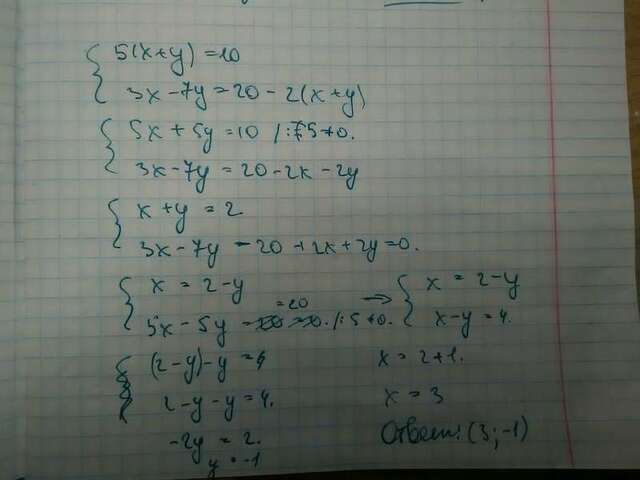 5(x+y)=10
3x-7y=20-2(x+y)
5x+5y=10 /:5≠0.
3x-7y=20-2x-2y
x+y=2
3x-7y-20+2x+2y=0.
x=2-y
5x-5y=20 /:5≠0.
→ x=2-y
x-y=4.
(2-y)-y=4
2-y-y=4.
-2y=2.
y=-1
x=2+1.
x=3
Ответ: (3;-1)